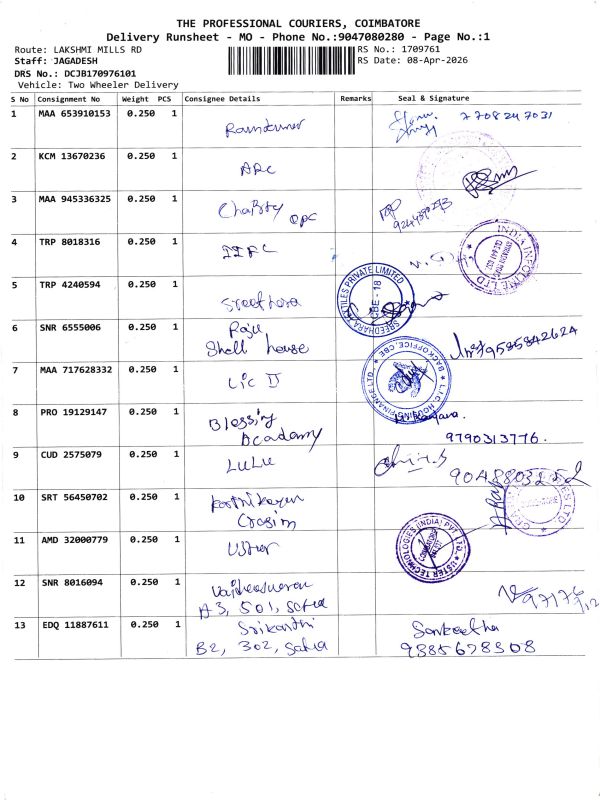 THE PROFESSIONAL COURIERS, COIMBATORE
Delivery Runsheet - MO - Phone No.:9047080280 - Page No.:1
Route: LAKSHMI MILLS RD
RS No.: 1709761
Staff: JAGADESH
RS Date: 08-Apr-2026
DRS No.: DCJB170976101
Vehicle: Two Wheeler Delivery
S No Consignment No Weight PCS Consignee Details Remarks Seal & Signature
1 MAA 653910153 0.250 1 7708247031
2 KCM 13670236 0.250 1
3 MAA 945336325 0.250 1
4 TRP 8018316 0.250 1 INDIA INFOLINE LTD
5 TRP 4240594 0.250 1 PRIVATE LIMITED CBE - 18
6 SNR 6555006 0.250 1 Raju
Shell house 9585842624
7 MAA 717628332 0.250 1 LIC II L.I.C. HOUSING FINANCE LTD. BACKOFFICE, CBE
8 PRO 19129147 0.250 1 Blessing
Academy 9790313776.
9 CUD 2575079 0.250 1 LULU
10 SRT 56450702 0.250 1
11 AMD 32000779 0.250 1 Uster USTER TECHNOLOGIES (INDIA) PVT. LTD.
12 SNR 8016094 0.250 1
A3, 501,
13 EDQ 11887611 0.250 1 Srikanthi Sankeetha
B2, 302, 9385678508